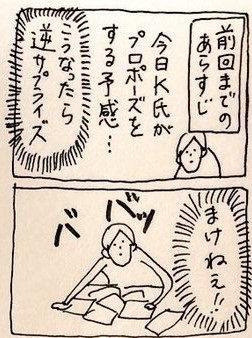 前回までの
あらすじ
今日K氏が
プロポーズを
する予感…
こうなったら
逆サプライズ
まけねえ!!
バッ
バ